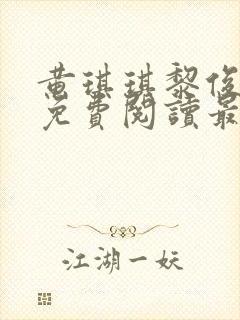 黄琪琪黎俊
免費閱讀最
江湖一妖